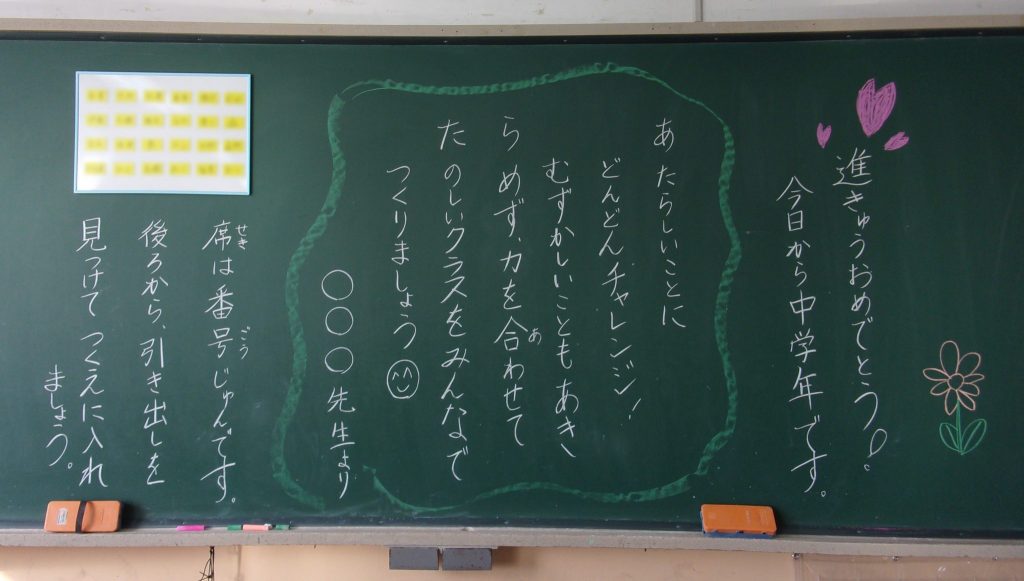 進きゅうおめでとう!
今日から中学年です。
あたらしいことに
どんどんチャレンジ!
むずかしいこともあき
らめず、力を合わせて
あ
たのしいクラスをみんなで
つくりましょう
○○○先生より
席は番号じゅんです。
せき
ごう
後ろから、引き出しを
見つけてつくえに入れ
ましょう。